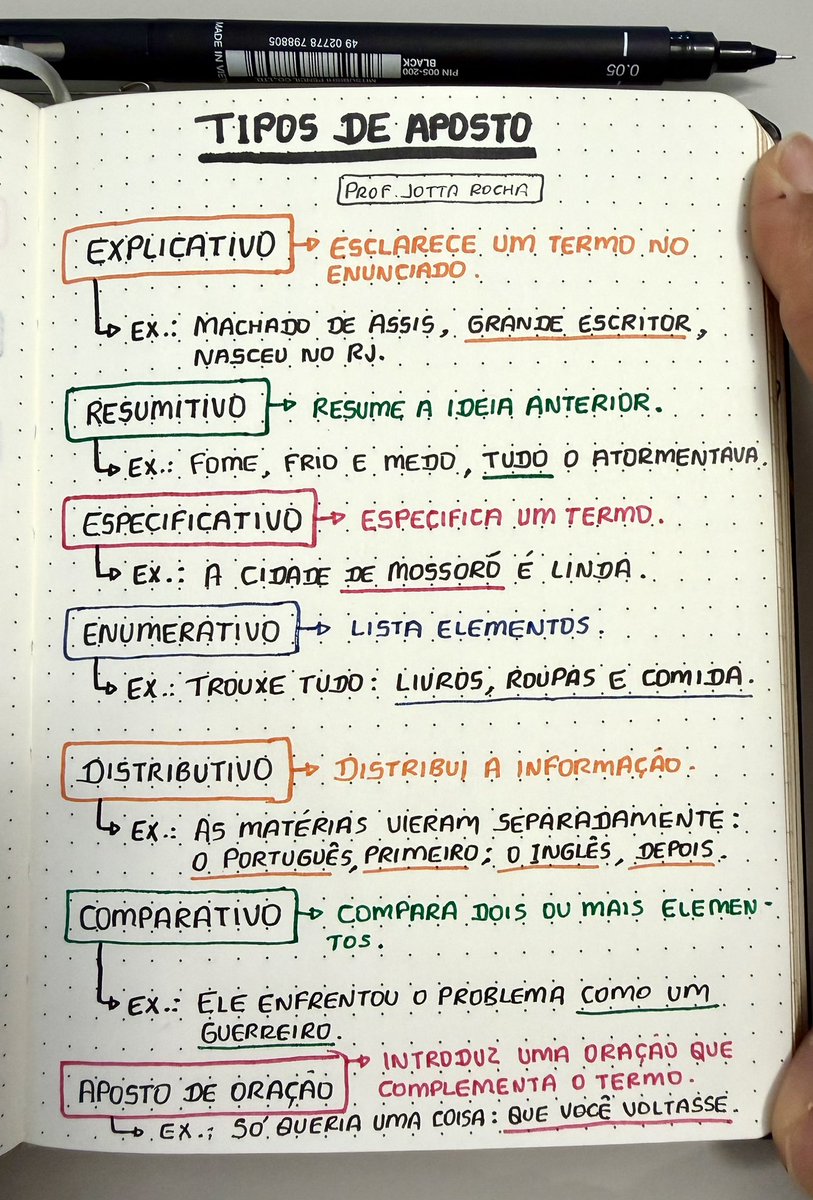 MADE IN VIE
49 02778 798805
PIN 005-200
BLACK
MITSUBISHI PENCIL CO.,LTD
0.05
TIPOS DE APOSTO
PROF. JOTTA ROCHA
EXPLICATIVO → ESCLARECE UM TERMO NO
ENUNCIADO.
EX.: MACHADO DE ASSIS, GRANDE ESCRITOR,
NASCEU NO RJ.
RESUMITIVO → RESUME A IDEIA ANTERIOR.
EX.: FOME, FRIO E MEDO, TUDO O ATORMENTAVA.
ESPECIFICATIVO → ESPECIFICA UM TERMO.
EX.: A CIDADE DE MOSSORÓ É LINDA.
ENUMERATIVO → LISTA ELEMENTOS.
EX.: TROUXE TUDO: LIVROS, ROUPAS E COMIDA.
DISTRIBUTIVO → DISTRIBUI A INFORMAÇÃO.
EX.: AS MATÉRIAS VIERAM SEPARADAMENTE:
O PORTUGUÊS, PRIMEIRO; O INGLÊS, DEPOIS.
COMPARATIVO → COMPARA DOIS OU MAIS ELEMEN-
TOS.
EX.: ELE ENFRENTOU O PROBLEMA COMO UM
GUERREIRO.
APOSTO DE ORAÇÃO → INTRODUZ UMA ORAÇÃO QUE
COMPLEMENTA O TERMO.
EX.: SÓ QUERIA UMA COISA: QUE VOCÊ VOLTASSE.